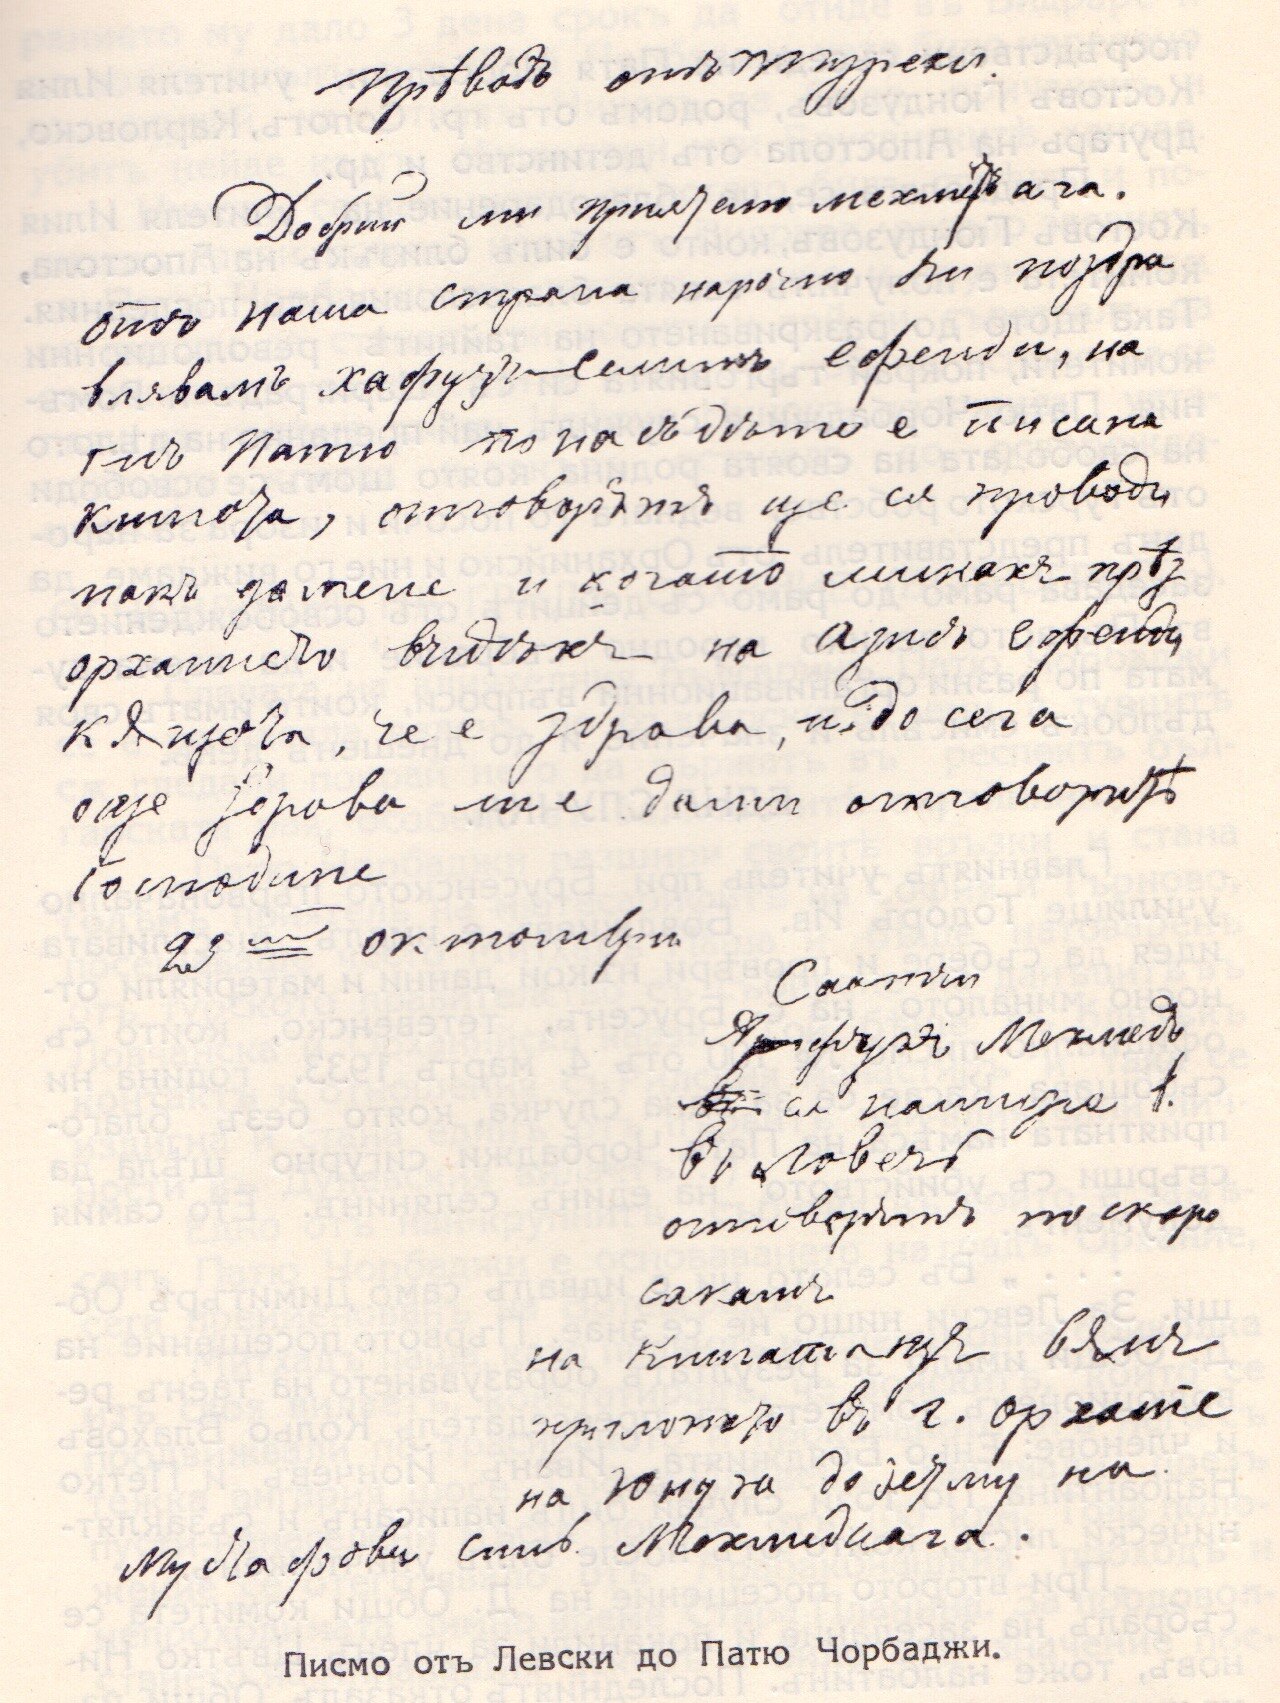 Прѣводъ отъ Турски.
Добрий ми приятелю мехмедъ ага.
отъ наша страна нарочно ви поздра
влявамъ хафузъ Селимъ ефенди, на
гиъ Патю по насъдѣто е писана
книга, отговорътъ ще ся проводи
пакъ до мене и когато минахъ прѣз
орханието видѣхъ на Азисъ ефенди
къщата, че е здрава, и до сега
още здрава ли е дами отговоритѣ
Господине
23 ий октомври.
Мехмедъ
ся намира
въ Ловечъ
отговорътъ по скоро
сакамъ
на книгата
приложето въ г. орхание
на до
Мустафовъ синъ Мехмедъага.
Писмо отъ Левски до Патю Чорбаджи.